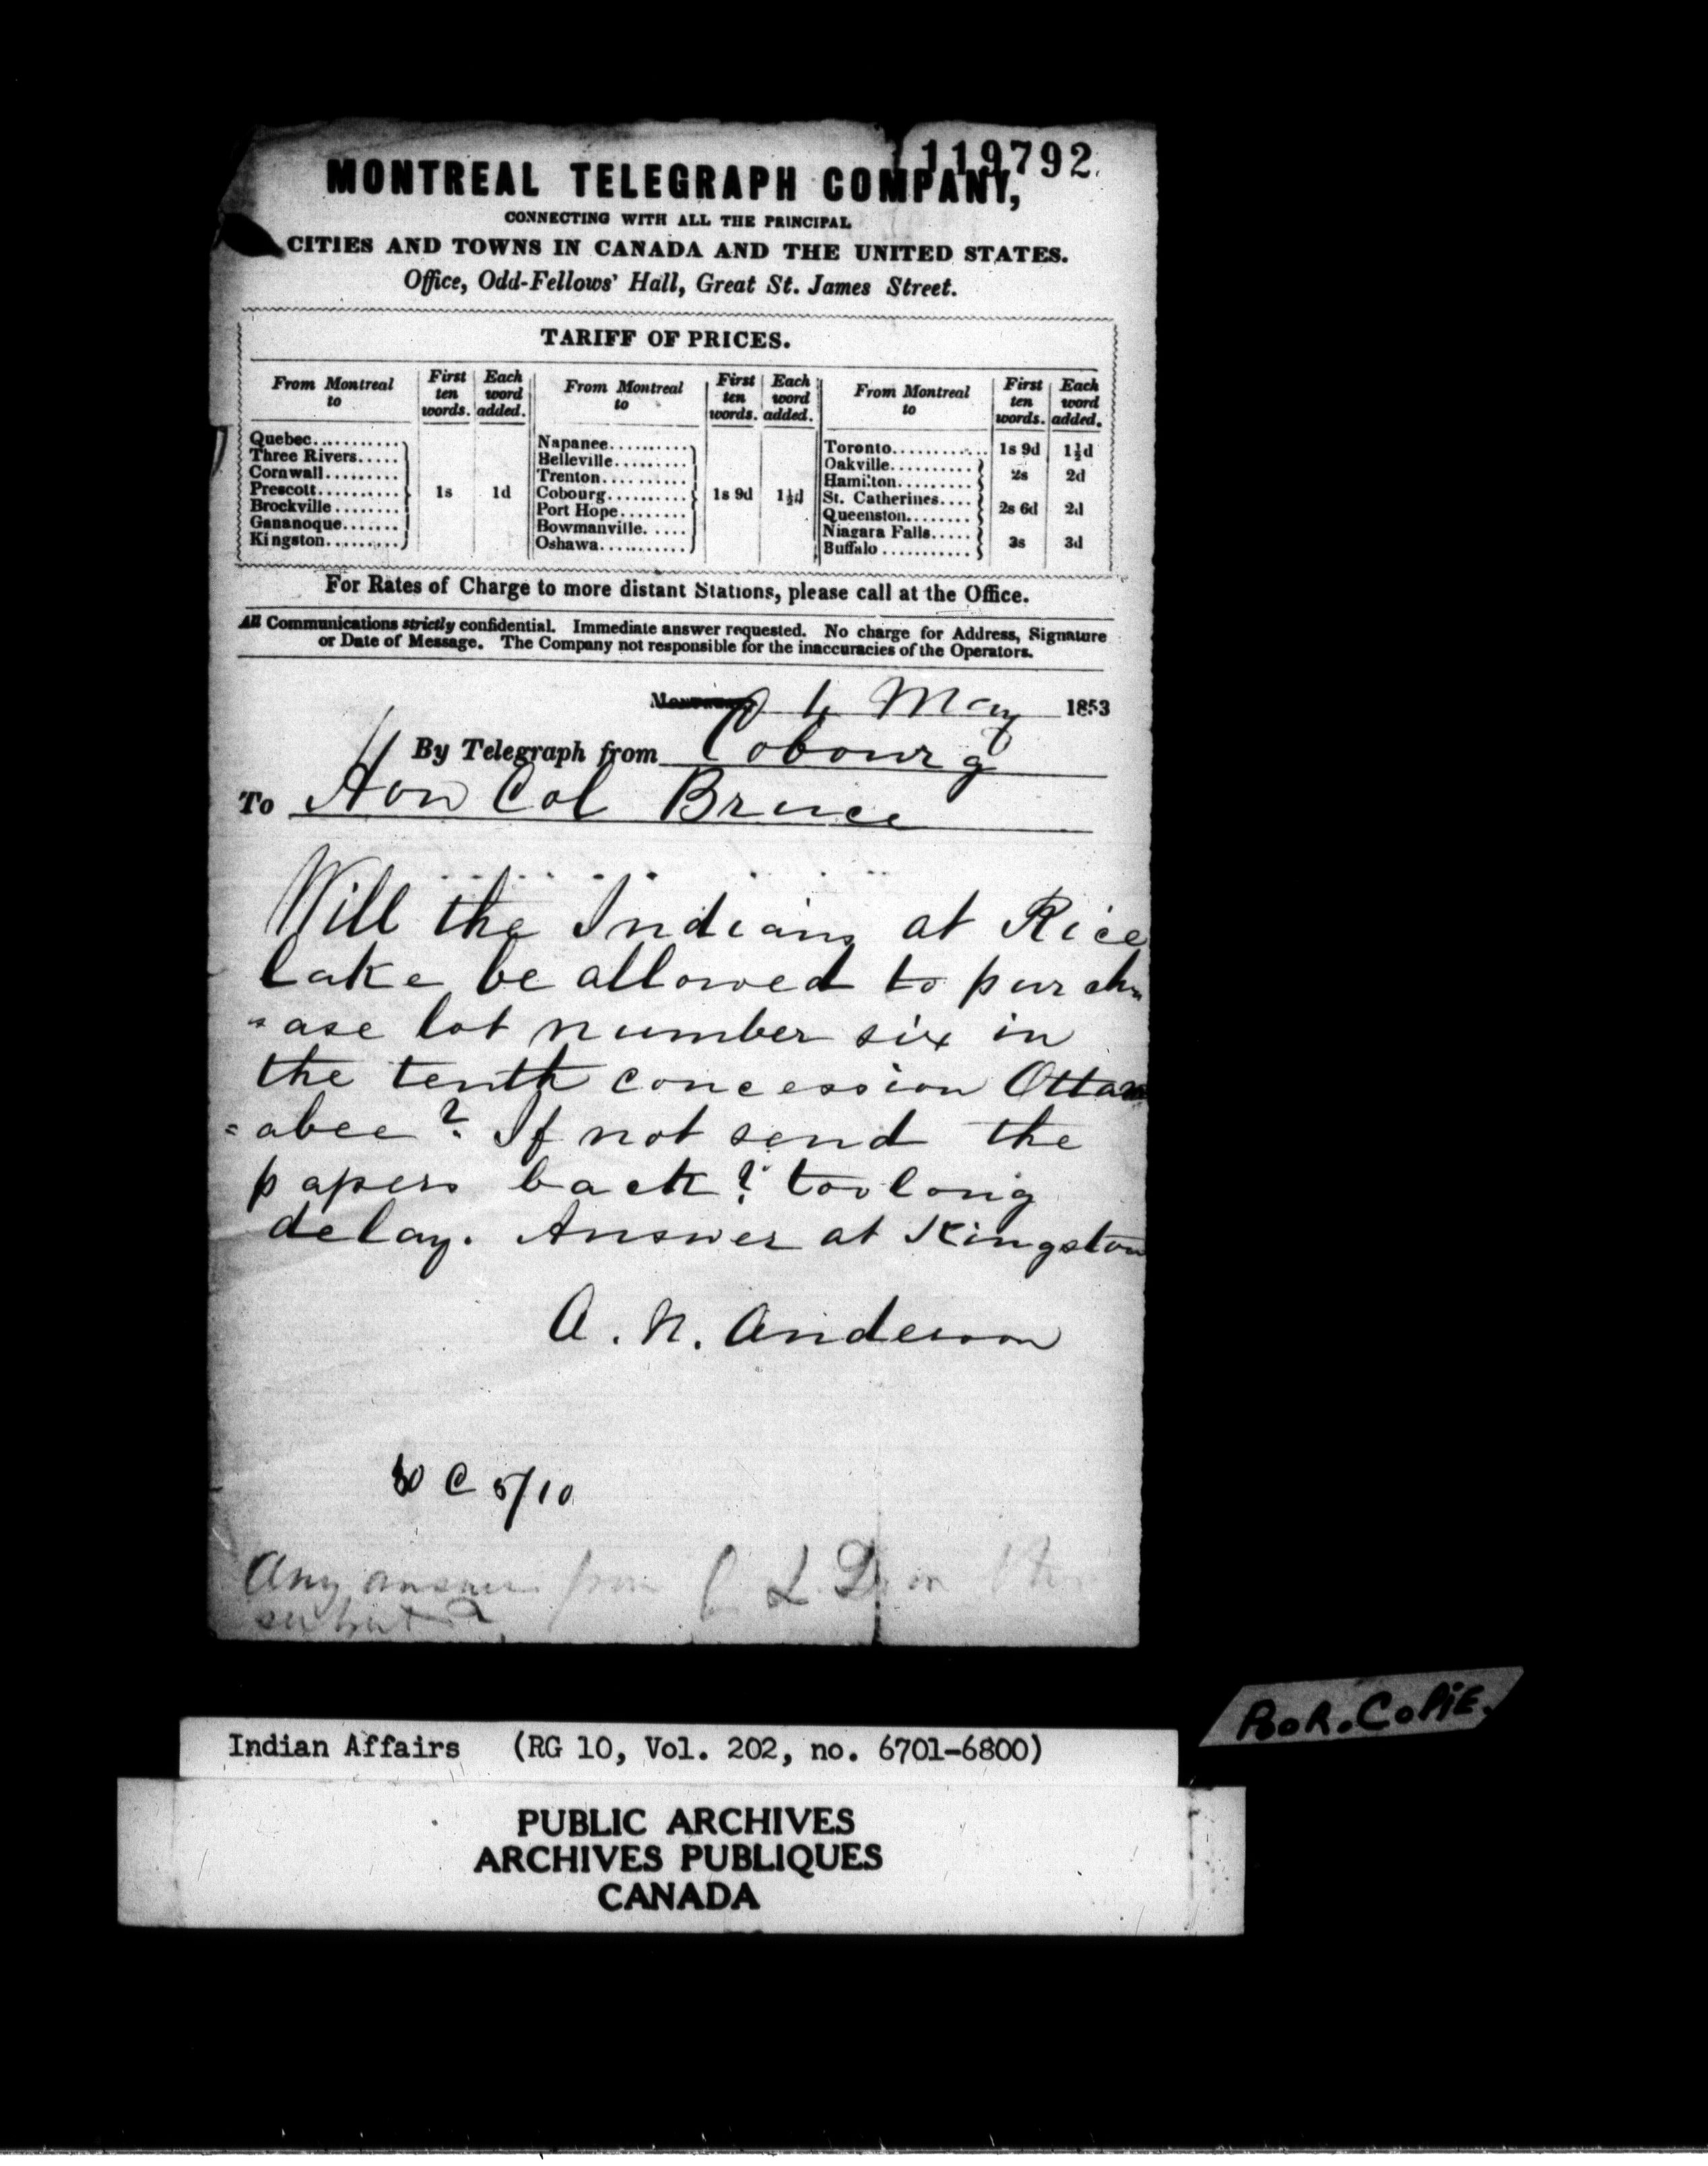 119792
MONTREAL TELEGRAPH COMPANY,
CONNECTING WITH ALL THE PRINCIPAL
CITIES AND TOWNS IN CANADA AND THE UNITED STATES.
Office, Odd-Fellows' Hall, Great St. James Street.
TARIFF OF PRICES.
From Montreal to | First ten words. | Each word added. | From Montreal to | First ten words. | Each word added. | From Montreal to | First ten words. | Each word added.
Quebec............
Three Rivers.....
Cornwall.........
Prescott.......... 1s 1d
Brockville........
Gananoque.......
Kingston..........
Napanee..........
Belleville.........
Trenton..........
Cobourg.......... 1s 9d 1½d
Port Hope........
Bowmanville......
Oshawa...........
Toronto............ 1s 9d 1½d
Oakville..........
Hamilton......... 2s 2d
St. Catherines....
Queenston........ 2s 6d 2d
Niagara Falls.....
Buffalo........... 3s 3d
For Rates of Charge to more distant Stations, please call at the Office.
All Communications strictly confidential. Immediate answer requested. No charge for Address, Signature
or Date of Message. The Company not responsible for the inaccuracies of the Operators.
4 May 1853
By Telegraph from Cobourg
To Hon Col Bruce
Will the Indians at Rice
Lake be allowed to purch
=ase lot number six in
the tenth concession Ottan
=abee? If not send the
papers back? too long
delay. Answer at Kingston
A. N. Anderson
30 C 5/10
Any answer from C L D on this
subject?
Indian Affairs (RG 10, Vol. 202, no. 6701-6800)
POOR.COPIE.
PUBLIC ARCHIVES
ARCHIVES PUBLIQUES
CANADA